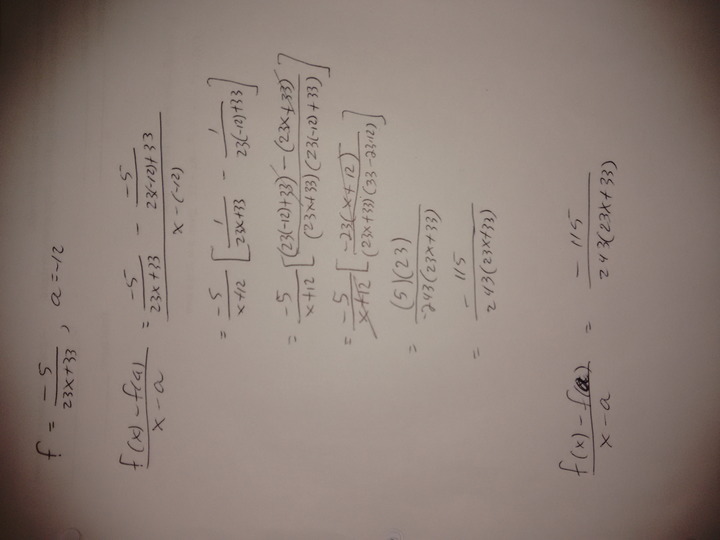 f = -5/(23x+33) , a=-12
(f(x)-f(a))/(x-a) = (-5/(23x+33) - -5/(23(-12)+33))/(x-(-12))
= -5/(x+12) [1/(23x+33) - 1/(23(-12)+33)]
= -5/(x+12) [((23(-12)+33)-(23x+33))/((23x+33)(23(-12)+33))]
= -5/(x+12) [-23(x+12)/((23x+33)(33-23·12))]
= (5)(23)/(-243(23x+33))
= -115/(243(23x+33))
(f(x)-f(a))/(x-a) = -115/(243(23x+33))